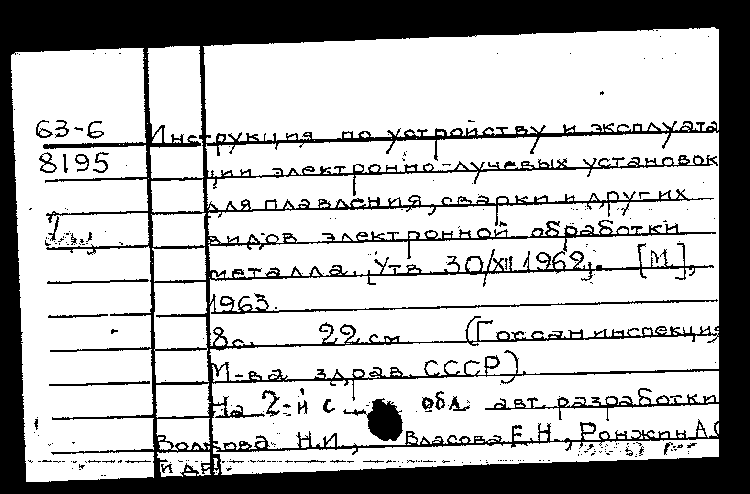 63-6 Инструкция по устройству и эксплуата
8195 ции электронно-лучевых установок
для плавления, сварки и других
видов электронной обработки
металла. [Утв. 30/XII 1962]. [М.],
1963.
8 с. 22 см (Госсанинспекция
М-ва здрав. СССР).
На 2-й с обл авт. разработки
Волкова Н.И., Власова Е.Н., Ронжин А.С
и др.